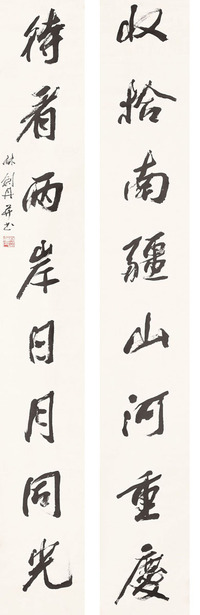 收拾南疆山河重慶
待看兩岸日月同光
林劍丹并書